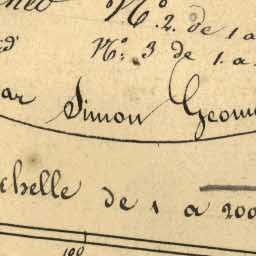 N° 2. de 1 a
N° 3 de 1. a
ar Simon Geom
chelle de 1 a 200
100